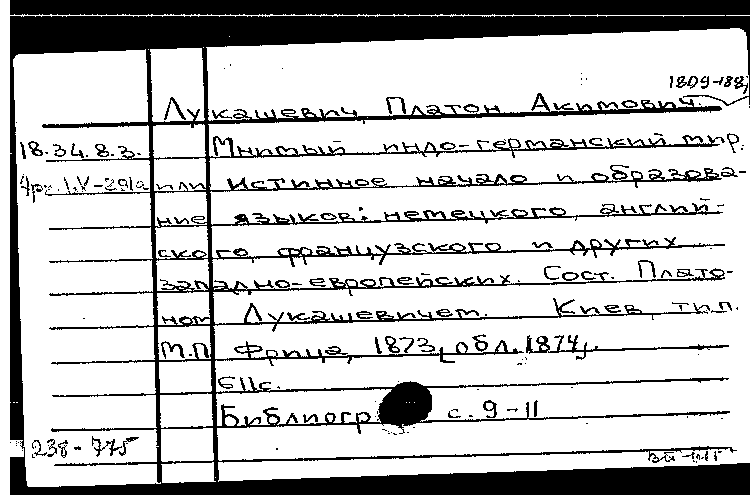 1809-188
Лукашевич, Платон Акимович.
18.34.8.3. Мнимый индо-германский мир,
или истинное начало и образова-
ние языков: немецкого, англий-
ского, французского и других
западно-европейских. Сост. Плато-
ном Лукашевичем. Киев, тип.
М.П. Фрица, 1873, [обл. 1874].
с. 9-11
Библиогр
238-775